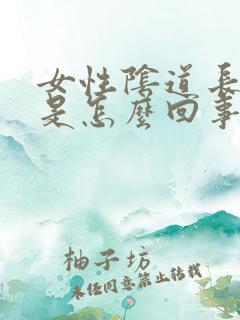 女性陰道長
是怎麼回事
柚子坊
未经同意禁止转载